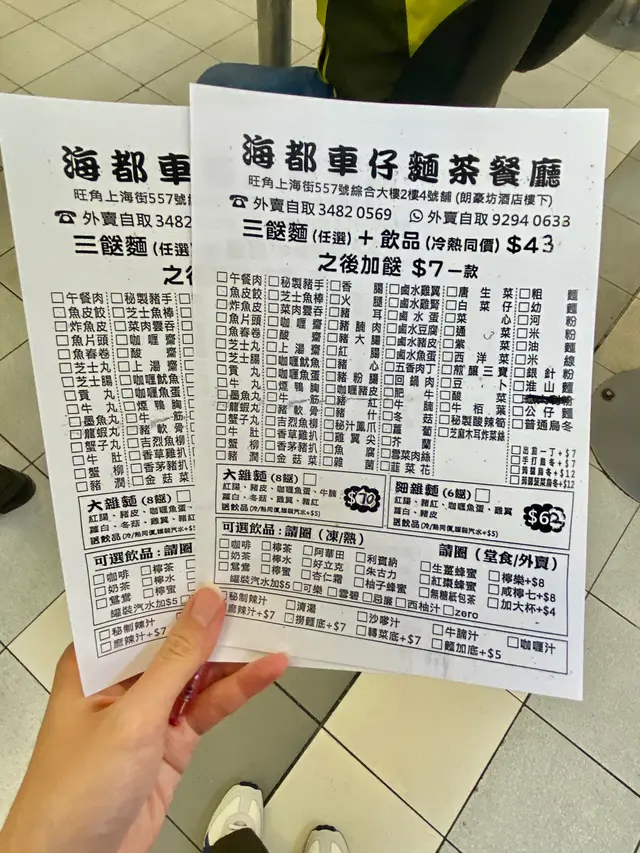 海都車仔麵茶餐廳
旺角上海街557號綜合大樓2樓4號舖 (朗豪坊酒店樓下)
☎ 外賣自取 3482 0569 外賣自取 9294 0633
三餸麵 (任選) + 飲品 (冷熱同價) $43
之後加餸 $7一款
□午餐肉 □秘製豬手 □香腸 □鹵水雞翼 □唐生菜 □粗麵
□魚皮餃 □芝士魚棒 □火腿 □鹵水雞腎 □白菜仔 □幼麵
□炸魚皮 □菜肉雲吞 □鹵水蛋 □菜心 □河粉
□魚片頭 □咖喱齋 □腩肉 □鹵水豆腐 □通菜 □米粉
□魚春卷 □酸齋 □豬大腸 □鹵水豬皮 □紫菜 □油麵
□芝士丸 □上湯齋 □紅腸 □鹵水魚蛋 □西洋菜 □米線
□芝士腸 □咖喱魷魚 □豬心 □五香肉丁 □煎釀三寶 □銀針粉
□貢丸 □咖喱魚蛋 □豬粉腸 □回鍋肉 □豆卜 □淮山麵
□牛丸 □煙鴨胸 □咖喱豬腸 □肥牛 □酸菜
□墨魚丸 □牛筋 □豬什 □牛腩 □牛栢葉 □公仔麵
□龍蝦丸 □豬軟骨 □豬紅 □冬菇 □秘製酸辣筍 □普通烏冬
□蟹子丸 □吉烈魚柳 □秘汁鳳爪 □蘿蔔 □芝麻木耳炸菜絲
□牛肚 □香草雞扒 □雞翼尖 □芥蘭 □出前一丁+$7
□蟹柳 □香茅雞扒 □魚腐 □雪菜肉絲 □手打烏冬+$7
□魚柳 □金菇菜 □雜菌 □韮菜花
大雜麵 (8餸) □
紅腸、豬皮、咖喱魚蛋、牛腩
蘿白、冬菇、雞翼、豬紅
送飲品 (冷/熱同價,罐裝汽水+$5)
$70
細雜麵 (6餸) □
紅腸、咖喱魚蛋、雞翼
蘿白、豬皮
送飲品 (冷/熱同價,罐裝汽水+$5)
$62
可選飲品：請圈 (凍/熱) 請圈 (堂食/外賣)
□咖啡 □檸茶 □阿華田 □利賓納 □生薑蜂蜜 □檸樂+$8
□奶茶 □檸水 □好立克 □朱古力 □紅棗蜂蜜 □咸檸七+$8
□鴛鴦 □檸蜜 □杏仁霜 □柚子蜂蜜 □無糖紙包茶 □加大杯+$4
罐裝汽水加$5 □可樂 □雪碧 □忌廉 □西柚汁 □zero
□秘制辣汁 □清湯 □沙嗲汁 □牛腩汁 □咖喱汁
□麻辣汁+$7 □撈麵底+$7 □轉菜底+$7 □麵加底+$5